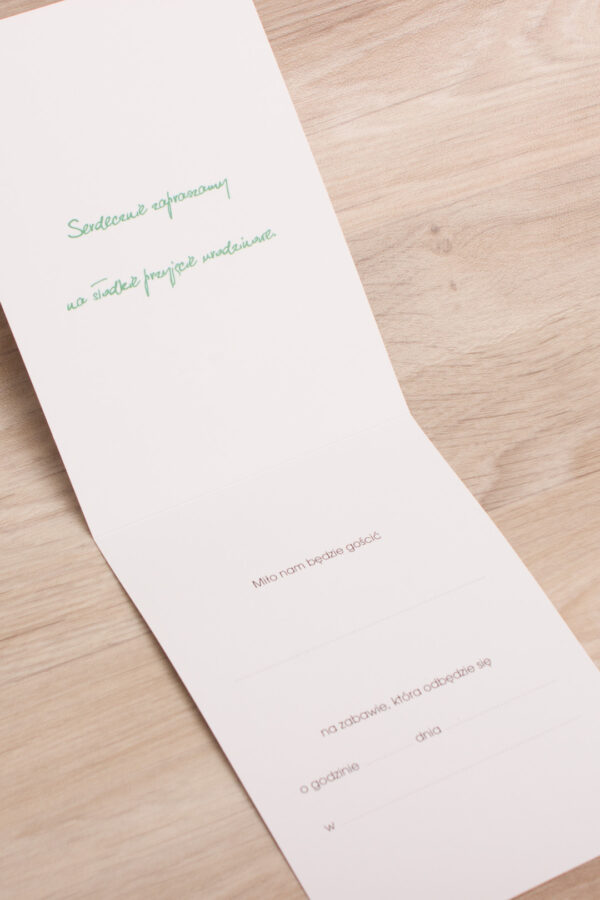 Serdecznie zapraszamy
na słodkie przyjęcie urodzinowe.
Miło nam będzie gościć
na zabawie, która odbędzie się
o godzinie dnia
w